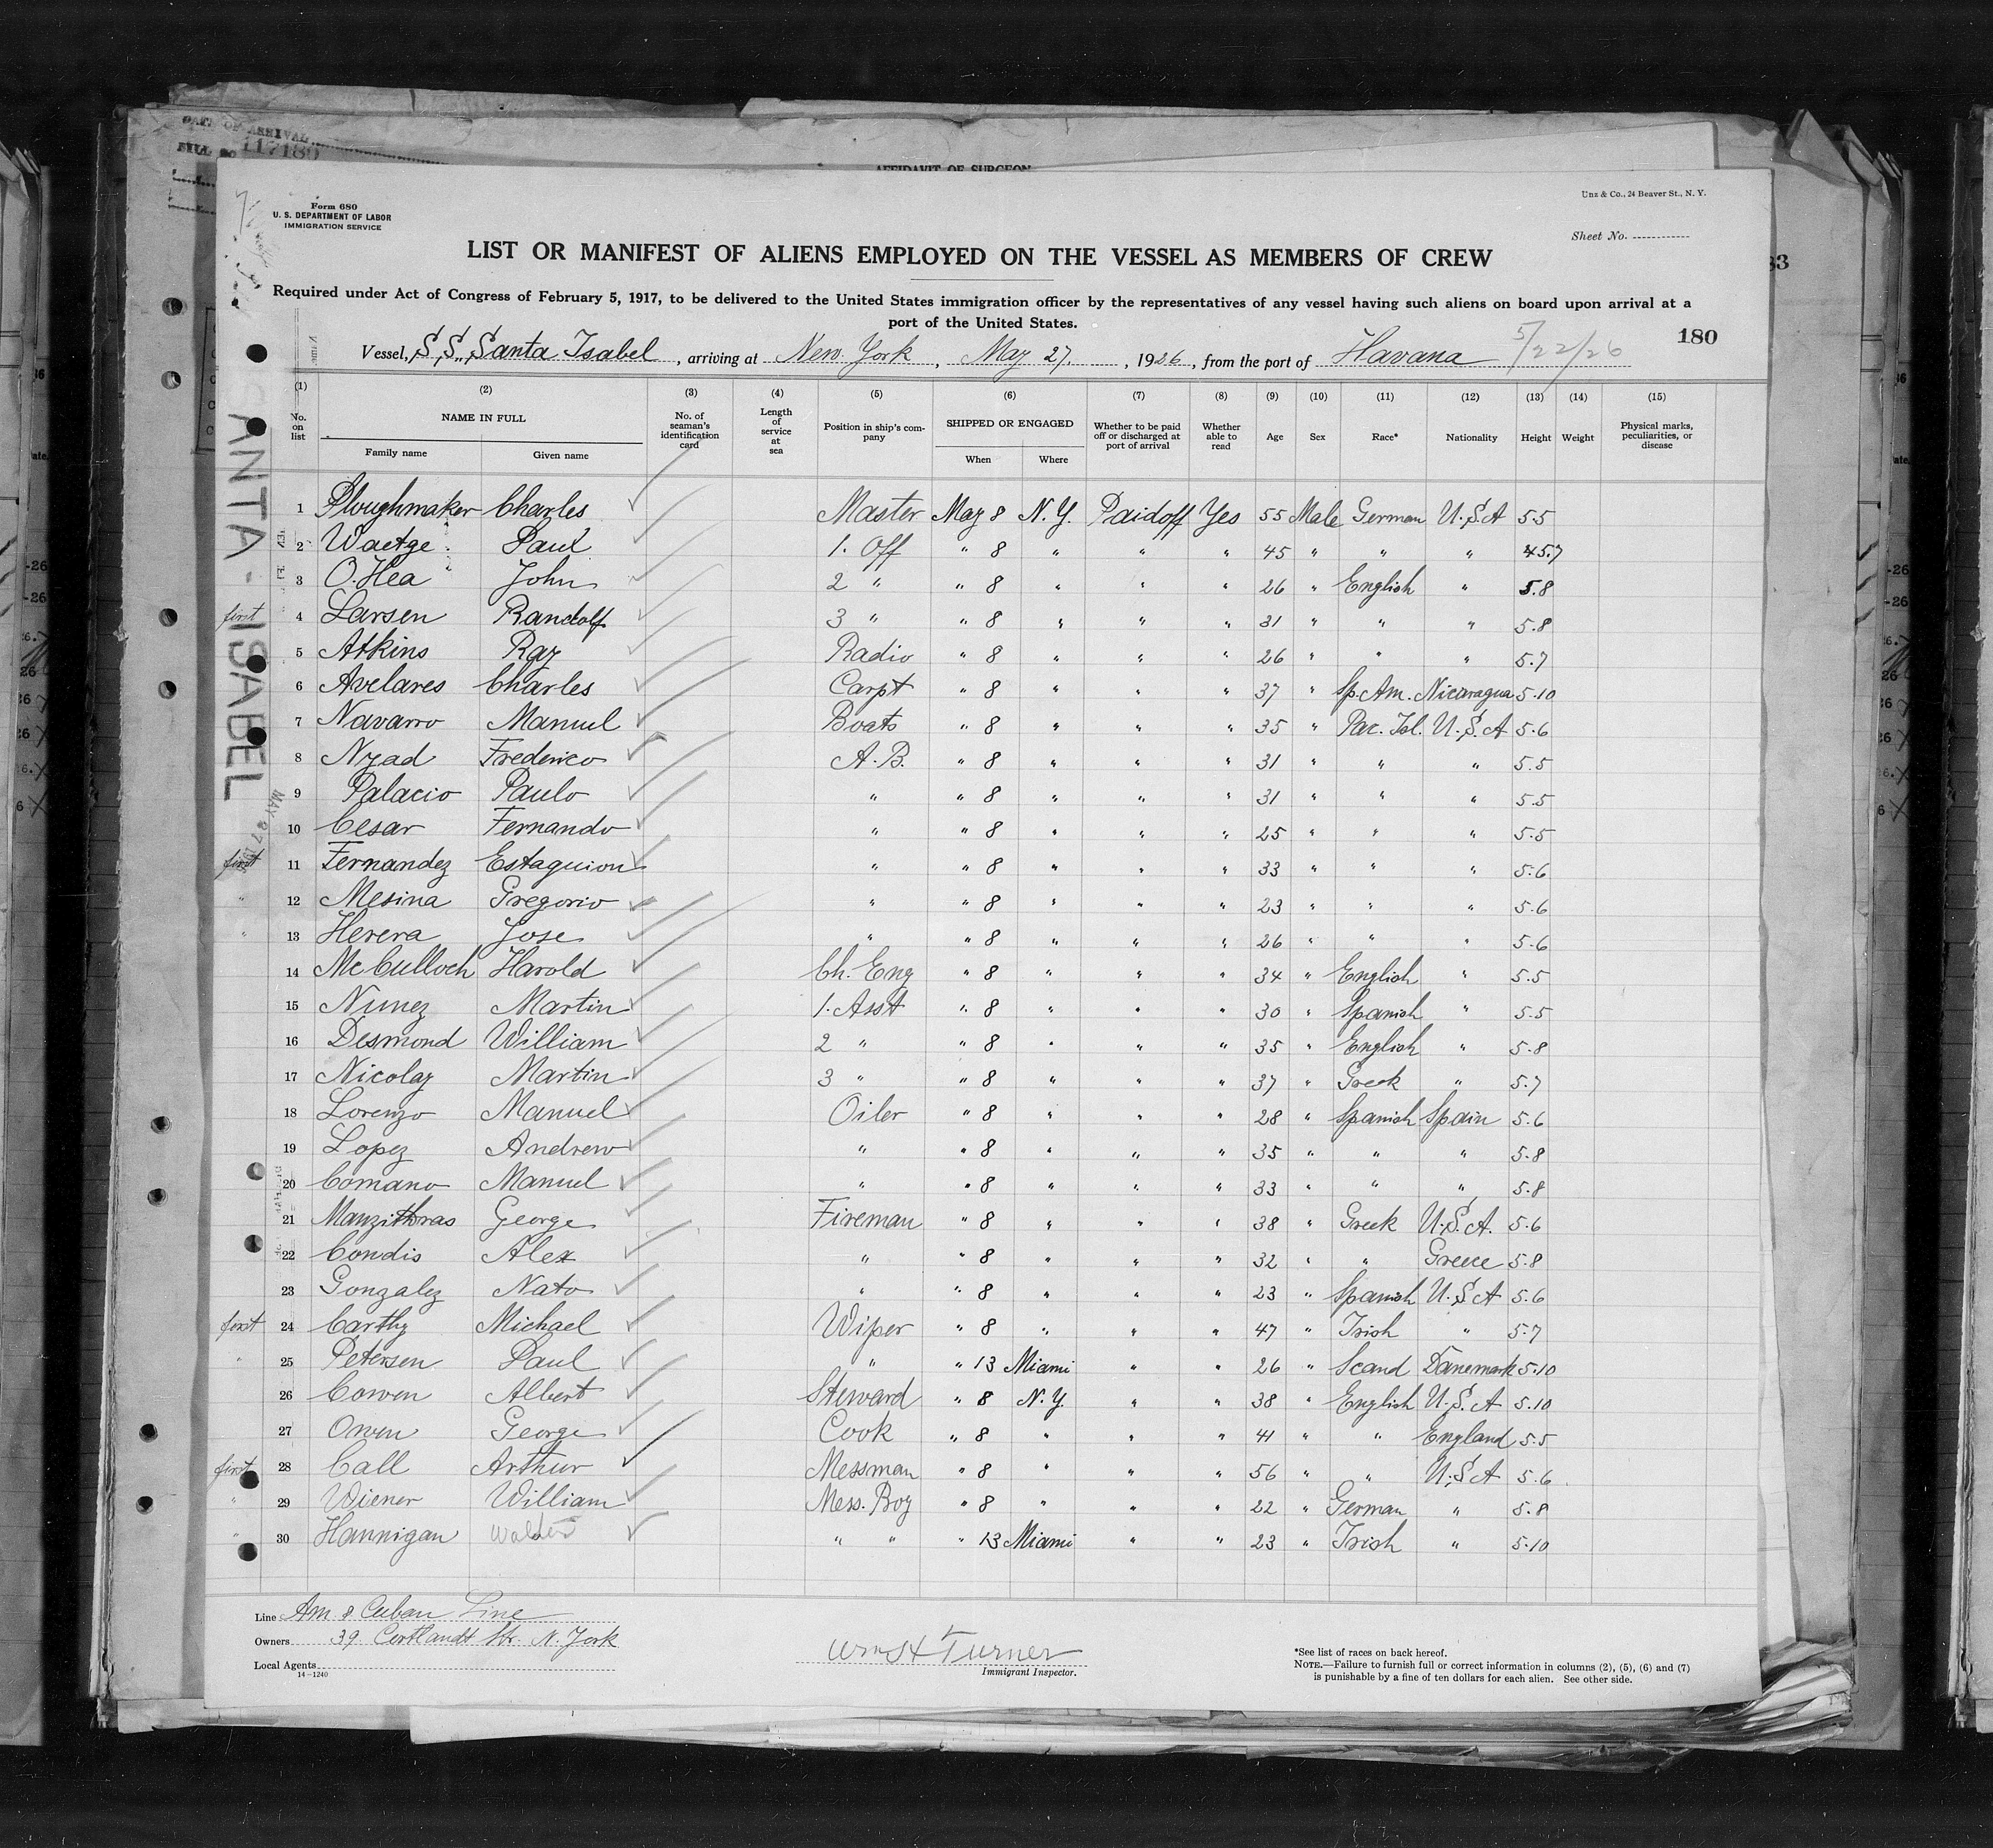 DATE OF ARRIVAL
117180
AFFIDAVIT OF SURGEON
Unz & Co., 24 Beaver St., N. Y.
Form 680
U. S. DEPARTMENT OF LABOR
IMMIGRATION SERVICE
Sheet No.
LIST OR MANIFEST OF ALIENS EMPLOYED ON THE VESSEL AS MEMBERS OF CREW
Required under Act of Congress of February 5, 1917, to be delivered to the United States immigration officer by the representatives of any vessel having such aliens on board upon arrival at a
port of the United States.
180
Vessel, S.S. Santa Isabel, arriving at New York, May 27, 1926, from the port of Havana 5/22/26
(1) (2) (3) (4) (5) (6) (7) (8) (9) (10) (11) (12) (13) (14) (15)
No. on list NAME IN FULL Family name Given name No. of seaman's identification card Length of service at sea Position in ship's company SHIPPED OR ENGAGED When Where Whether to be paid off or discharged at port of arrival Whether able to read Age Sex Race* Nationality Height Weight Physical marks, peculiarities, or disease
1 Ploughmaker Charles Master May 8 N.Y. Paid off Yes 55 Male German U.S.A 5.5
2 Waetge Paul 1. Off " 8 " " " 45 " " " 5.7
3 O.Hea John 2 " " 8 " " " 26 " English " 5.8
first 4 Larsen Randolf 3 " " 8 " " " 31 " " " 5.8
5 Atkins Ray Radio " 8 " " " 26 " " " 5.7
6 Avelares Charles Carpt " 8 " " " 37 " Sp. Am. Nicaragua 5.10
7 Navarro Manuel Boats " 8 " " " 35 " Pac. Isl. U.S.A 5.6
8 Nyad Frederico A.B. " 8 " " " 31 " " " 5.5
9 Palacio Paulo " " 8 " " " 31 " " " 5.5
10 Cesar Fernando " " 8 " " " 25 " " " 5.5
first 11 Fernandez Estaquion " " 8 " " " 33 " " " 5.6
" 12 Mesina Gregorio " " 8 " " " 23 " " " 5.6
" 13 Herera Jose " " 8 " " " 26 " " " 5.6
14 McCulloch Harold Ch. Eng " 8 " " " 34 " English " 5.5
15 Nunez Martin 1. Asst " 8 " " " 30 " Spanish " 5.5
16 Desmond William 2 " " 8 " " " 35 " English " 5.8
17 Nicolay Martin 3 " " 8 " " " 37 " Greek " 5.7
18 Lorenzo Manuel Oiler " 8 " " " 28 " Spanish Spain 5.6
19 Lopez Andrew " " 8 " " " 35 " " " 5.8
20 Comano Manuel " " 8 " " " 33 " " " 5.8
21 Manzithras George Fireman " 8 " " " 38 " Greek U.S.A. 5.6
22 Condis Alex " " 8 " " " 32 " " Greece 5.8
23 Gonzalez Nato " " 8 " " " 23 " Spanish U.S.A 5.6
first 24 Carthy Michael Wiper " 8 " " " 47 " Irish " 5.7
" 25 Petersen Paul " " 13 Miami " " 26 " Scand Danemark 5.10
26 Cowen Albert Steward " 8 N.Y. " " 38 " English U.S.A 5.10
27 Owen George Cook " 8 " " " 41 " " England 5.5
first 28 Call Arthur Messman " 8 " " " 56 " " U.S.A 5.6
" 29 Wiener William Mess. Boy " 8 " " " 22 " German " 5.8
" 30 Hannigan Walter " " " 13 Miami " " 23 " Irish " 5.10
ANTA - ISABEL
MAY 27
Line Am. & Cuban Line
Owners 39 Cortlandt Str. N. York
Local Agents
14-1240
Wm H Turner
Immigrant Inspector.
*See list of races on back hereof.
NOTE.—Failure to furnish full or correct information in columns (2), (5), (6) and (7)
is punishable by a fine of ten dollars for each alien. See other side.